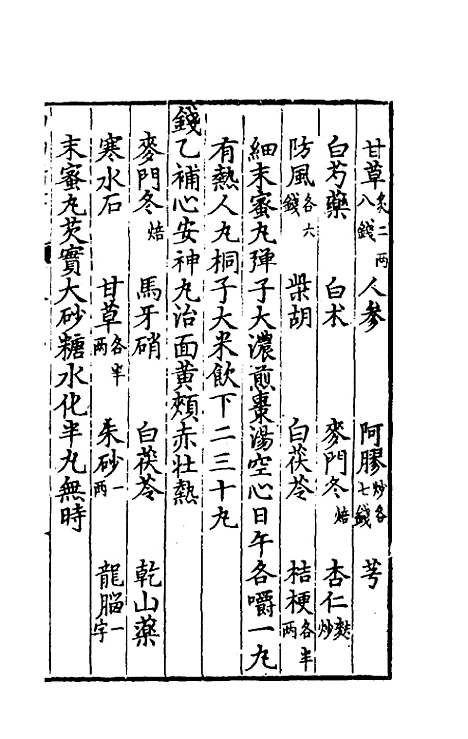 甘草炙二兩八錢 人參 阿膠炒各七錢 芎
白芍藥 白朮 麥門冬焙 杏仁麩炒
防風各六錢 柴胡 白茯苓 桔梗各半兩
細末蜜丸彈子大濃煎棗湯空心日午各嚼一丸
有熱人丸桐子大米飲下二三十丸
錢乙補心安神丸治面黃頰赤壯熱
麥門冬焙 馬牙硝 白茯苓 乾山藥
寒水石 甘草各半兩 朱砂一兩 龍腦一字
末蜜丸芡實大砂糖水化半丸無時